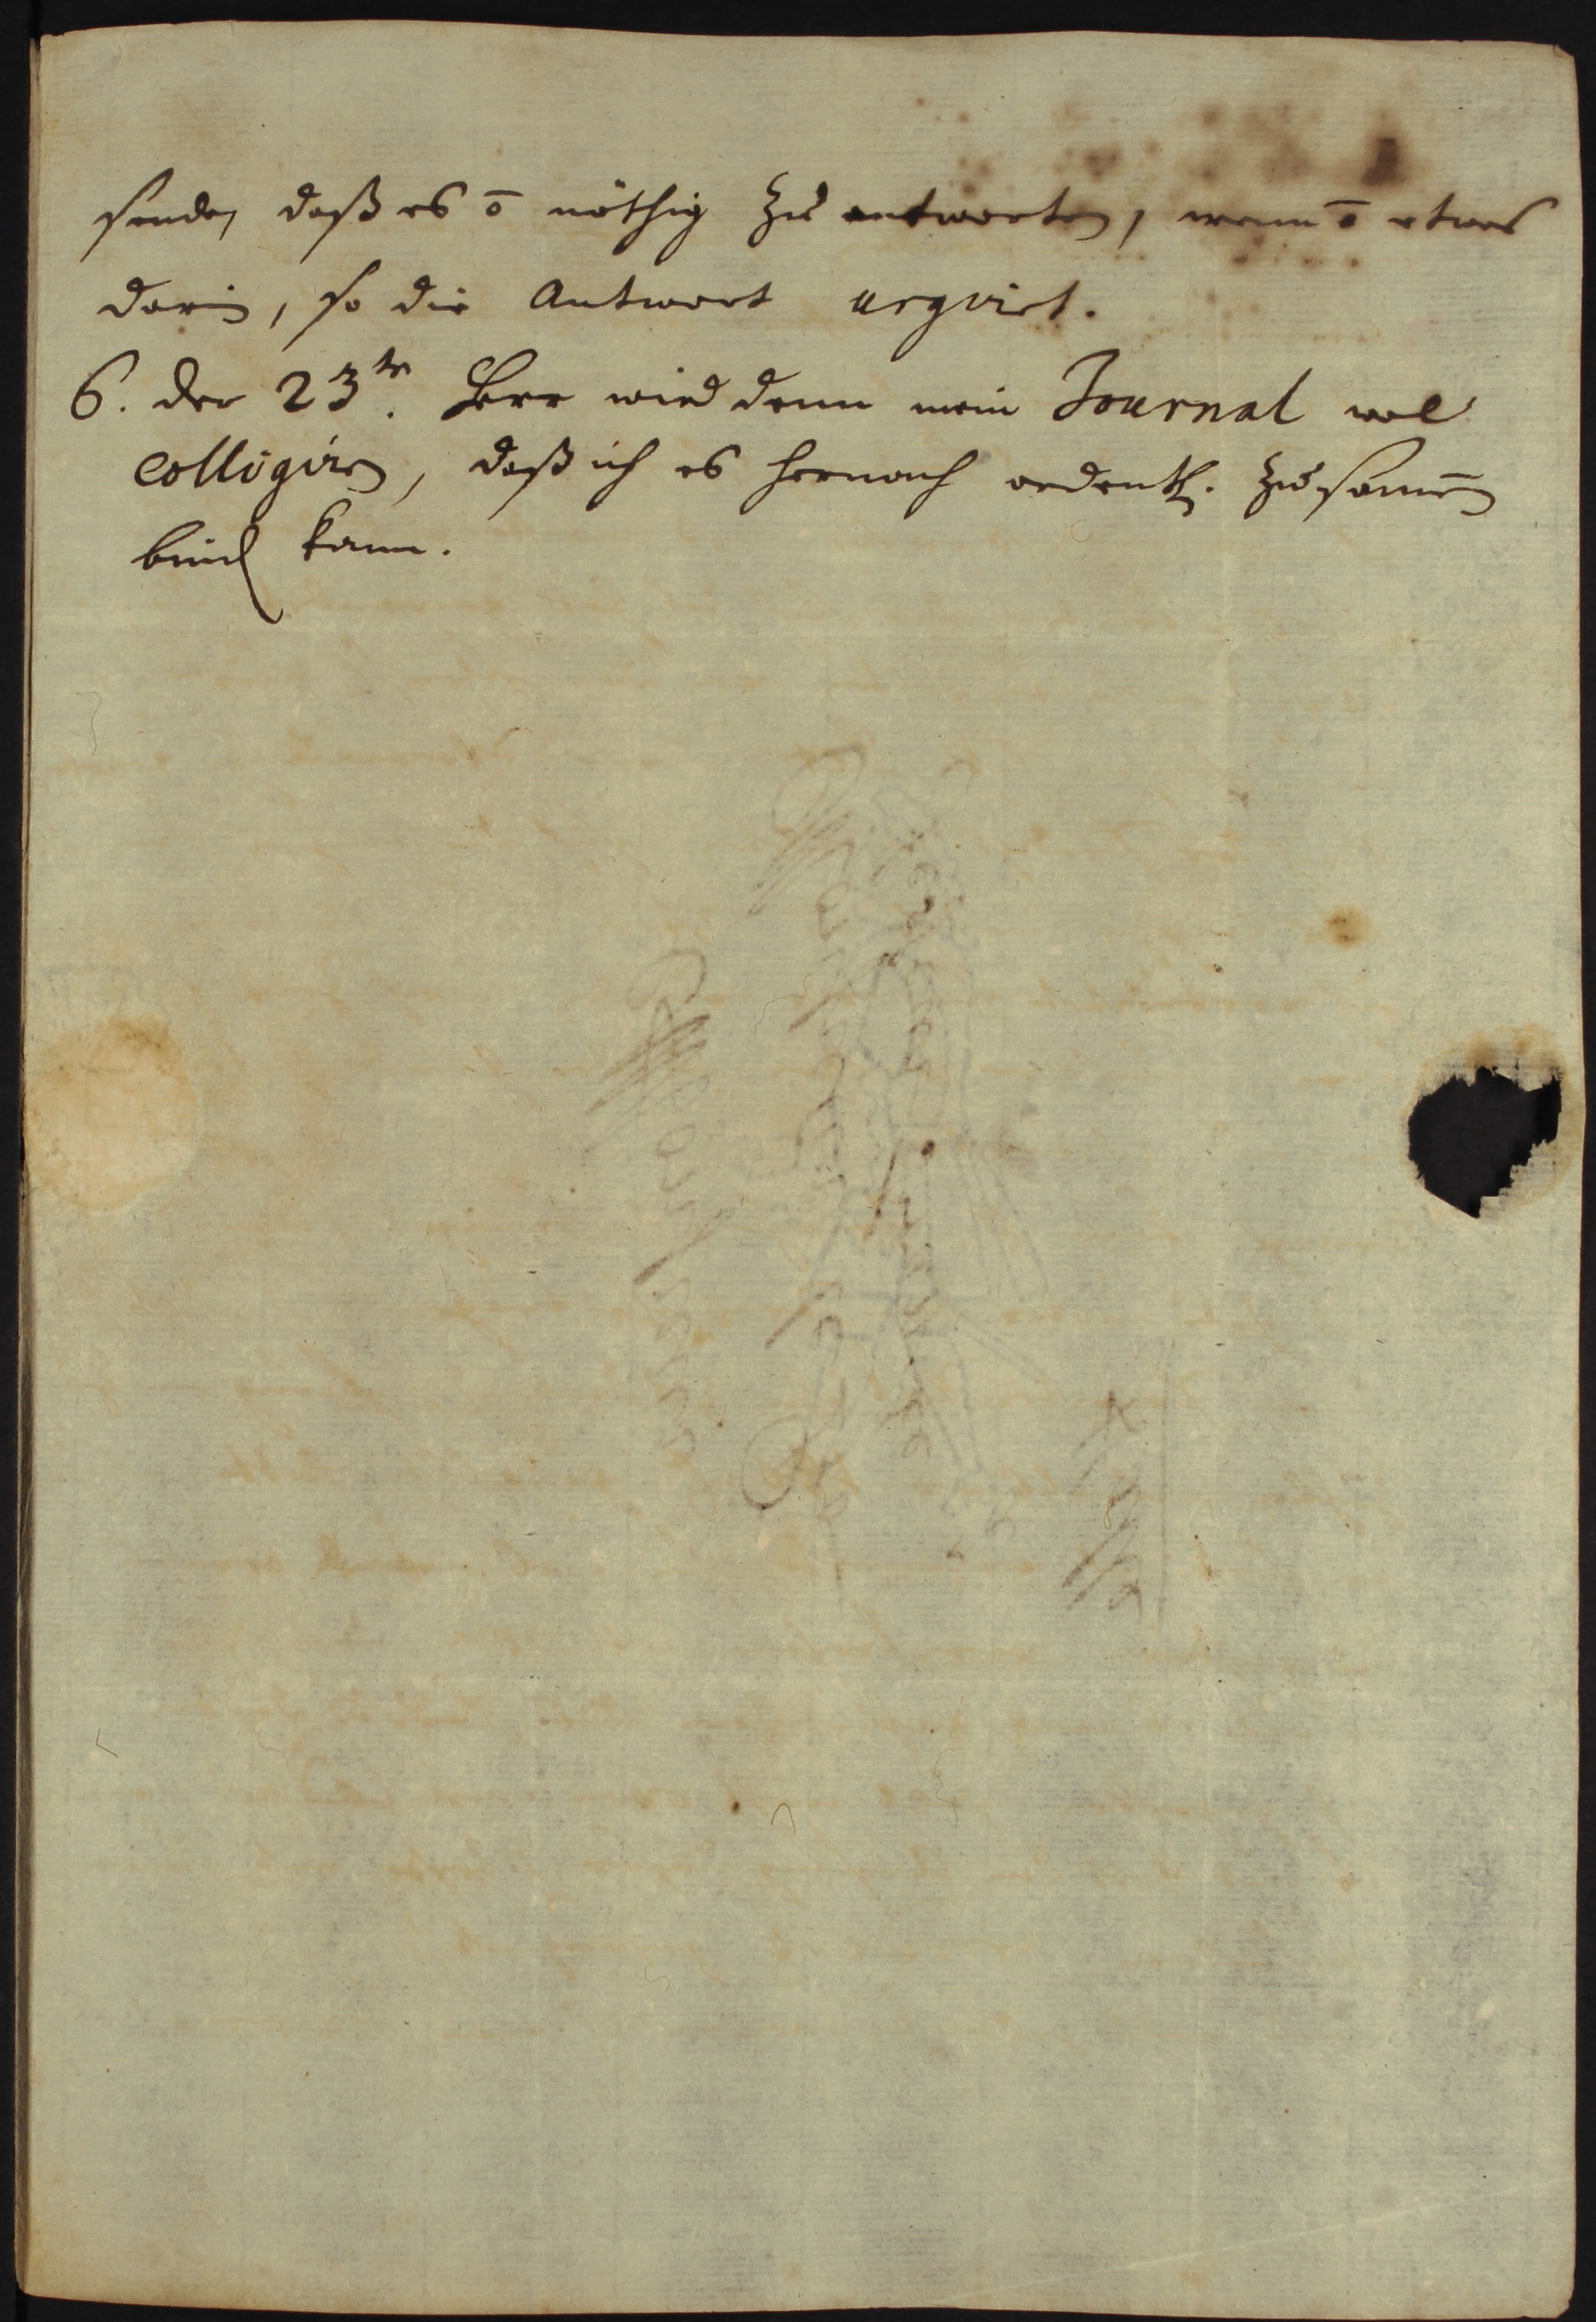 sende, daß es ō nöthig zu antworten, wenn ō etwas
darin, so die Antwort urgvirt.
6. der 23te. Herr wird denn mein Journal wol
colligiren, daß ich es hernach ordentl. zusam̄en
bind kann.